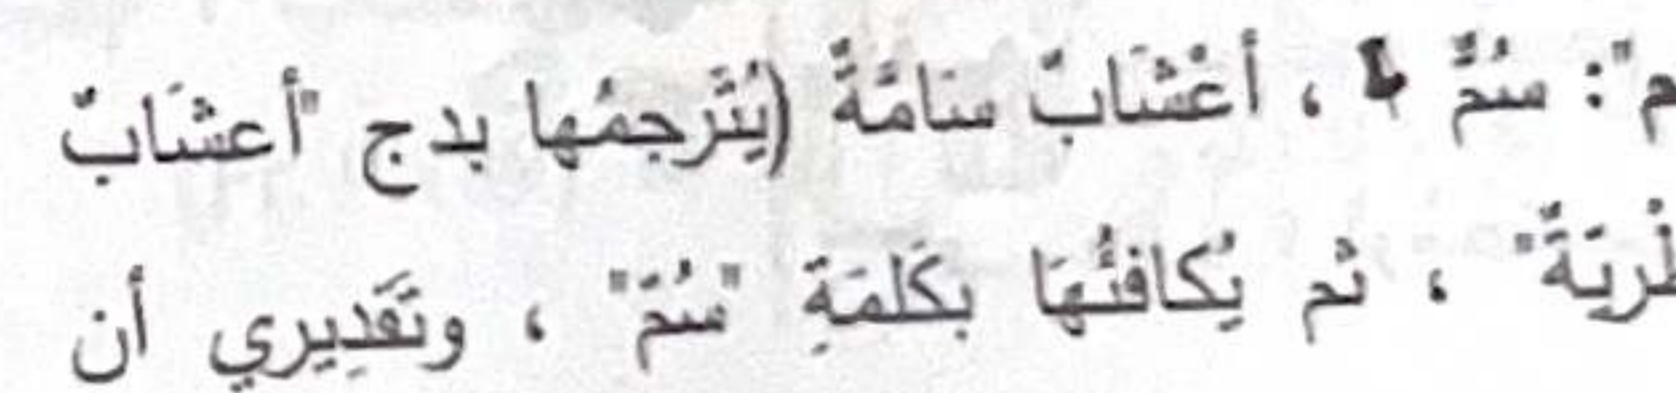 م": سُمٌّ ، أَعْشَابٌ سَامَّةٌ (يُتَرجِمُها بدج "أعشَابٌ
، ثم يُكافئُهَا بكَلمَةِ "سُمّ" ، وتَقدِيري أن